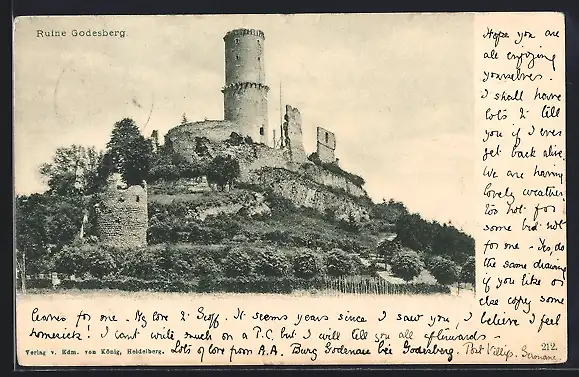 Ruine Godesberg.
Hope you are
all enjoying
yourselves.
I shall have
lots to tell
you if I ever
get back alive.
We are having
lovely weather
too hot for
some but not
for me - Yes, do
the same drawing
if you like or
else copy some
leaves for me - My love to Geoff. It seems years since I saw you, I believe I feel
homesick! I can't write much on a P.C. but I will tell you all afterwards -
Lots of love from A.A. Burg Godenau bei Godesberg. Post Villip. Germany.
Verlag v. Edm. von König, Heidelberg.
212.